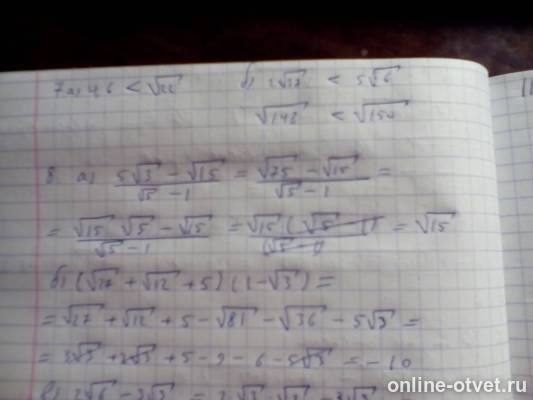 7 а) 4,6 < √22 б) 2√37 < 5√6
√148 < √150
8 а) (5√3 − √15)/(√5 − 1) = (√75 − √15)/(√5 − 1) =
= (√15 √5 − √15)/(√5 − 1) = √15 (√5 − 1)/(√5 − 1) = √15
б) (√27 + √12 + 5)(1 − √3) =
= √27 + √12 + 5 − √81 − √36 − 5√3 =
= 3√3 + 2√3 + 5 − 9 − 6 − 5√3 = −10
online-otvet.ru